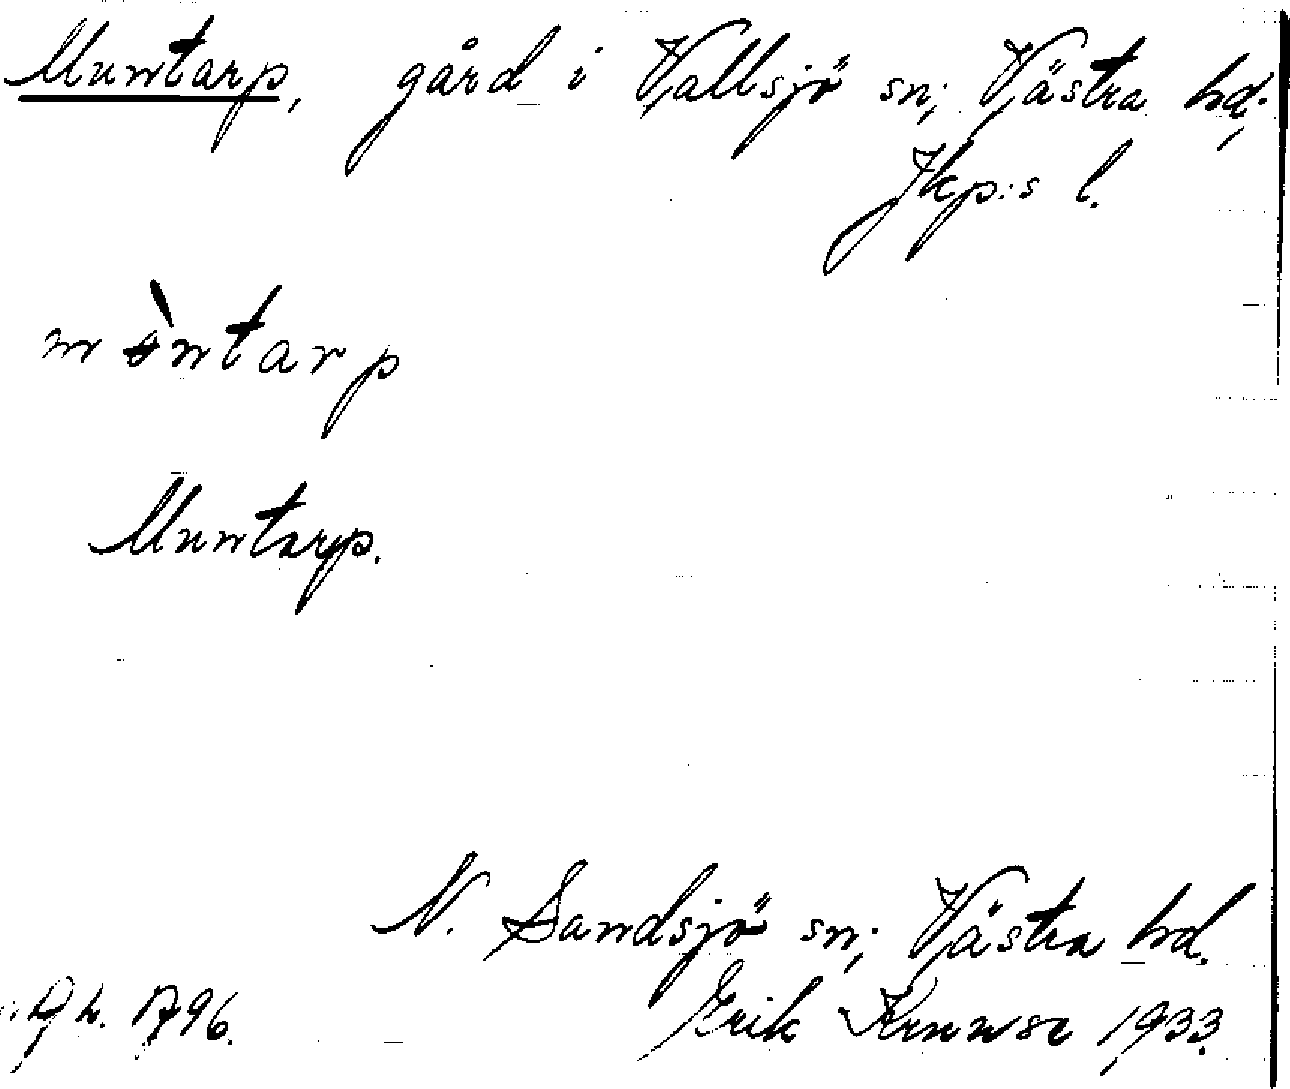 Muntarp, gård i Vallsjö sn; Västra hd.
Jkp:s l.
màntarp
Muntarp.
N. Sandsjö sn; Västra hd.
1796. Erik Krunse 1933.